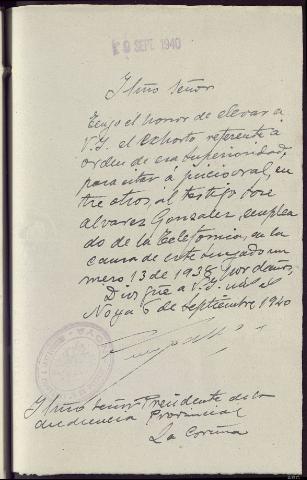 9 SEPT. 1940
Ilmo Señor
Tengo el honor de elevar á
V.I. el exhorto referente á
orden de esa Superioridad,
para citar á juicio oral, en
tre otros, al testigo José
Alvarez Gonzalez, emplea
do de la Telefonica, en la
causa de este Juzgado nu
mero 13 de 1938, por daños,
Dios gue á V.I. m
Noya 6 de septiembre 1940
Ilmo Señor Presidente de la
Audiencia Provincial
La Coruña